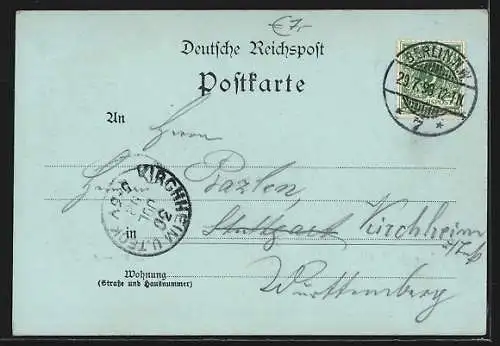 €7,-
Deutsche Reichspost
Postkarte
BERLIN N.W.
29.7.98. 12-1N.
* 7 *
An
Herrn
Bazlen
KIRCHHEIM U. TECK
30
JUL
5-6 V
in Stuttgart Kirchheim
u/Teck
Wohnung
(Straße und Hausnummer)
Württemberg